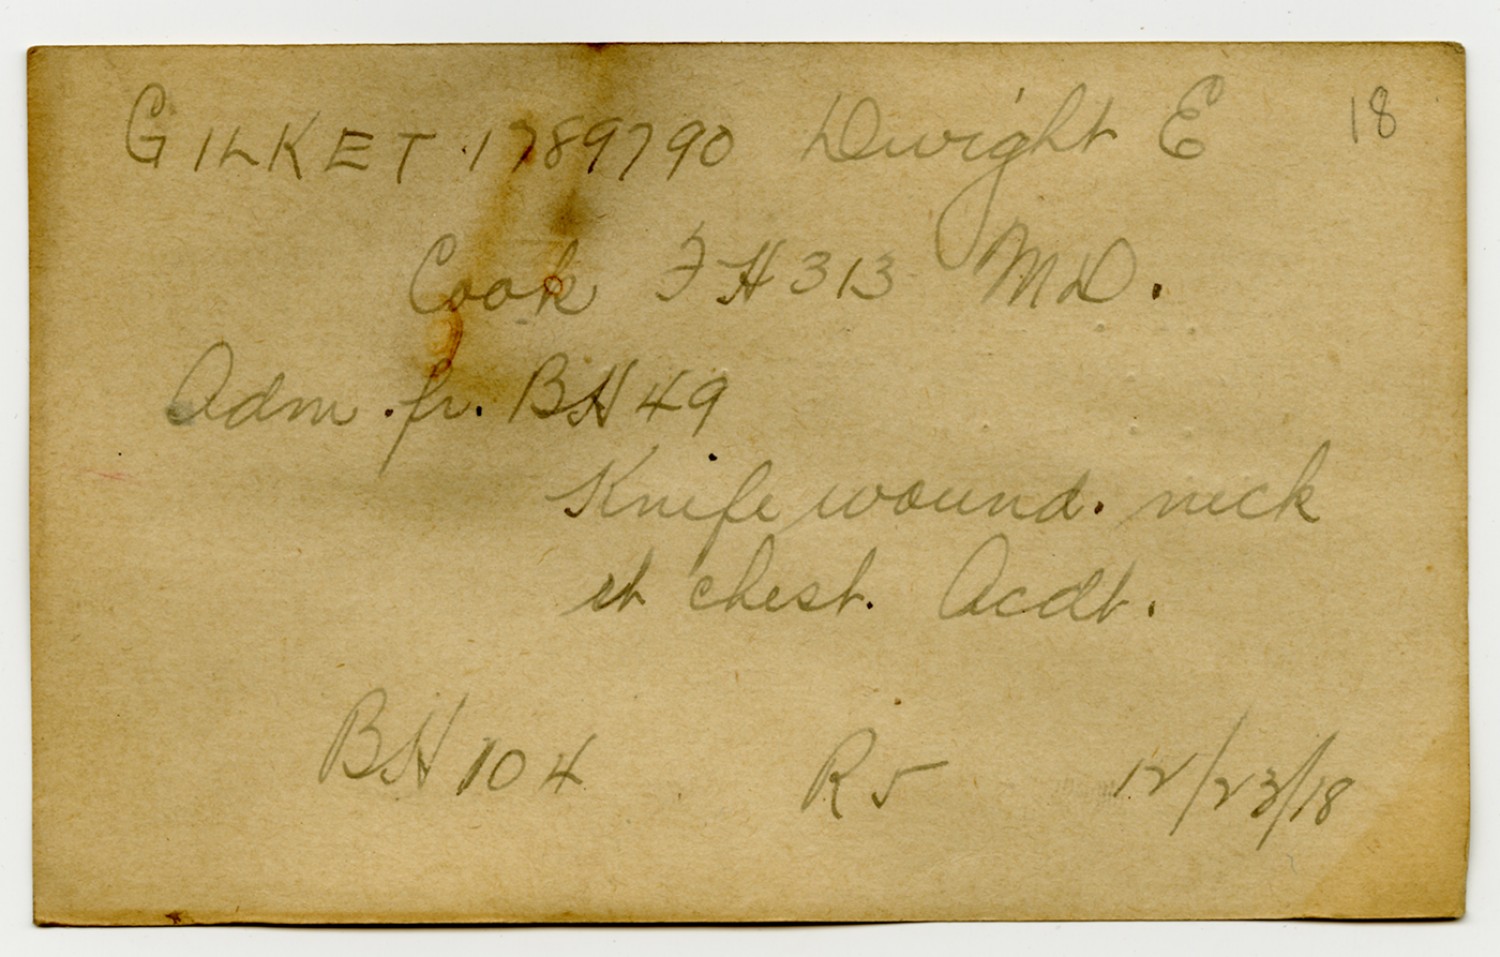 GILKET 1789790 Dwight E 18
Cook FH 313 MD.
Adm. fr. BH 49
Knife wound. neck
et chest. Acdt.
BH 104 R5 12/23/18